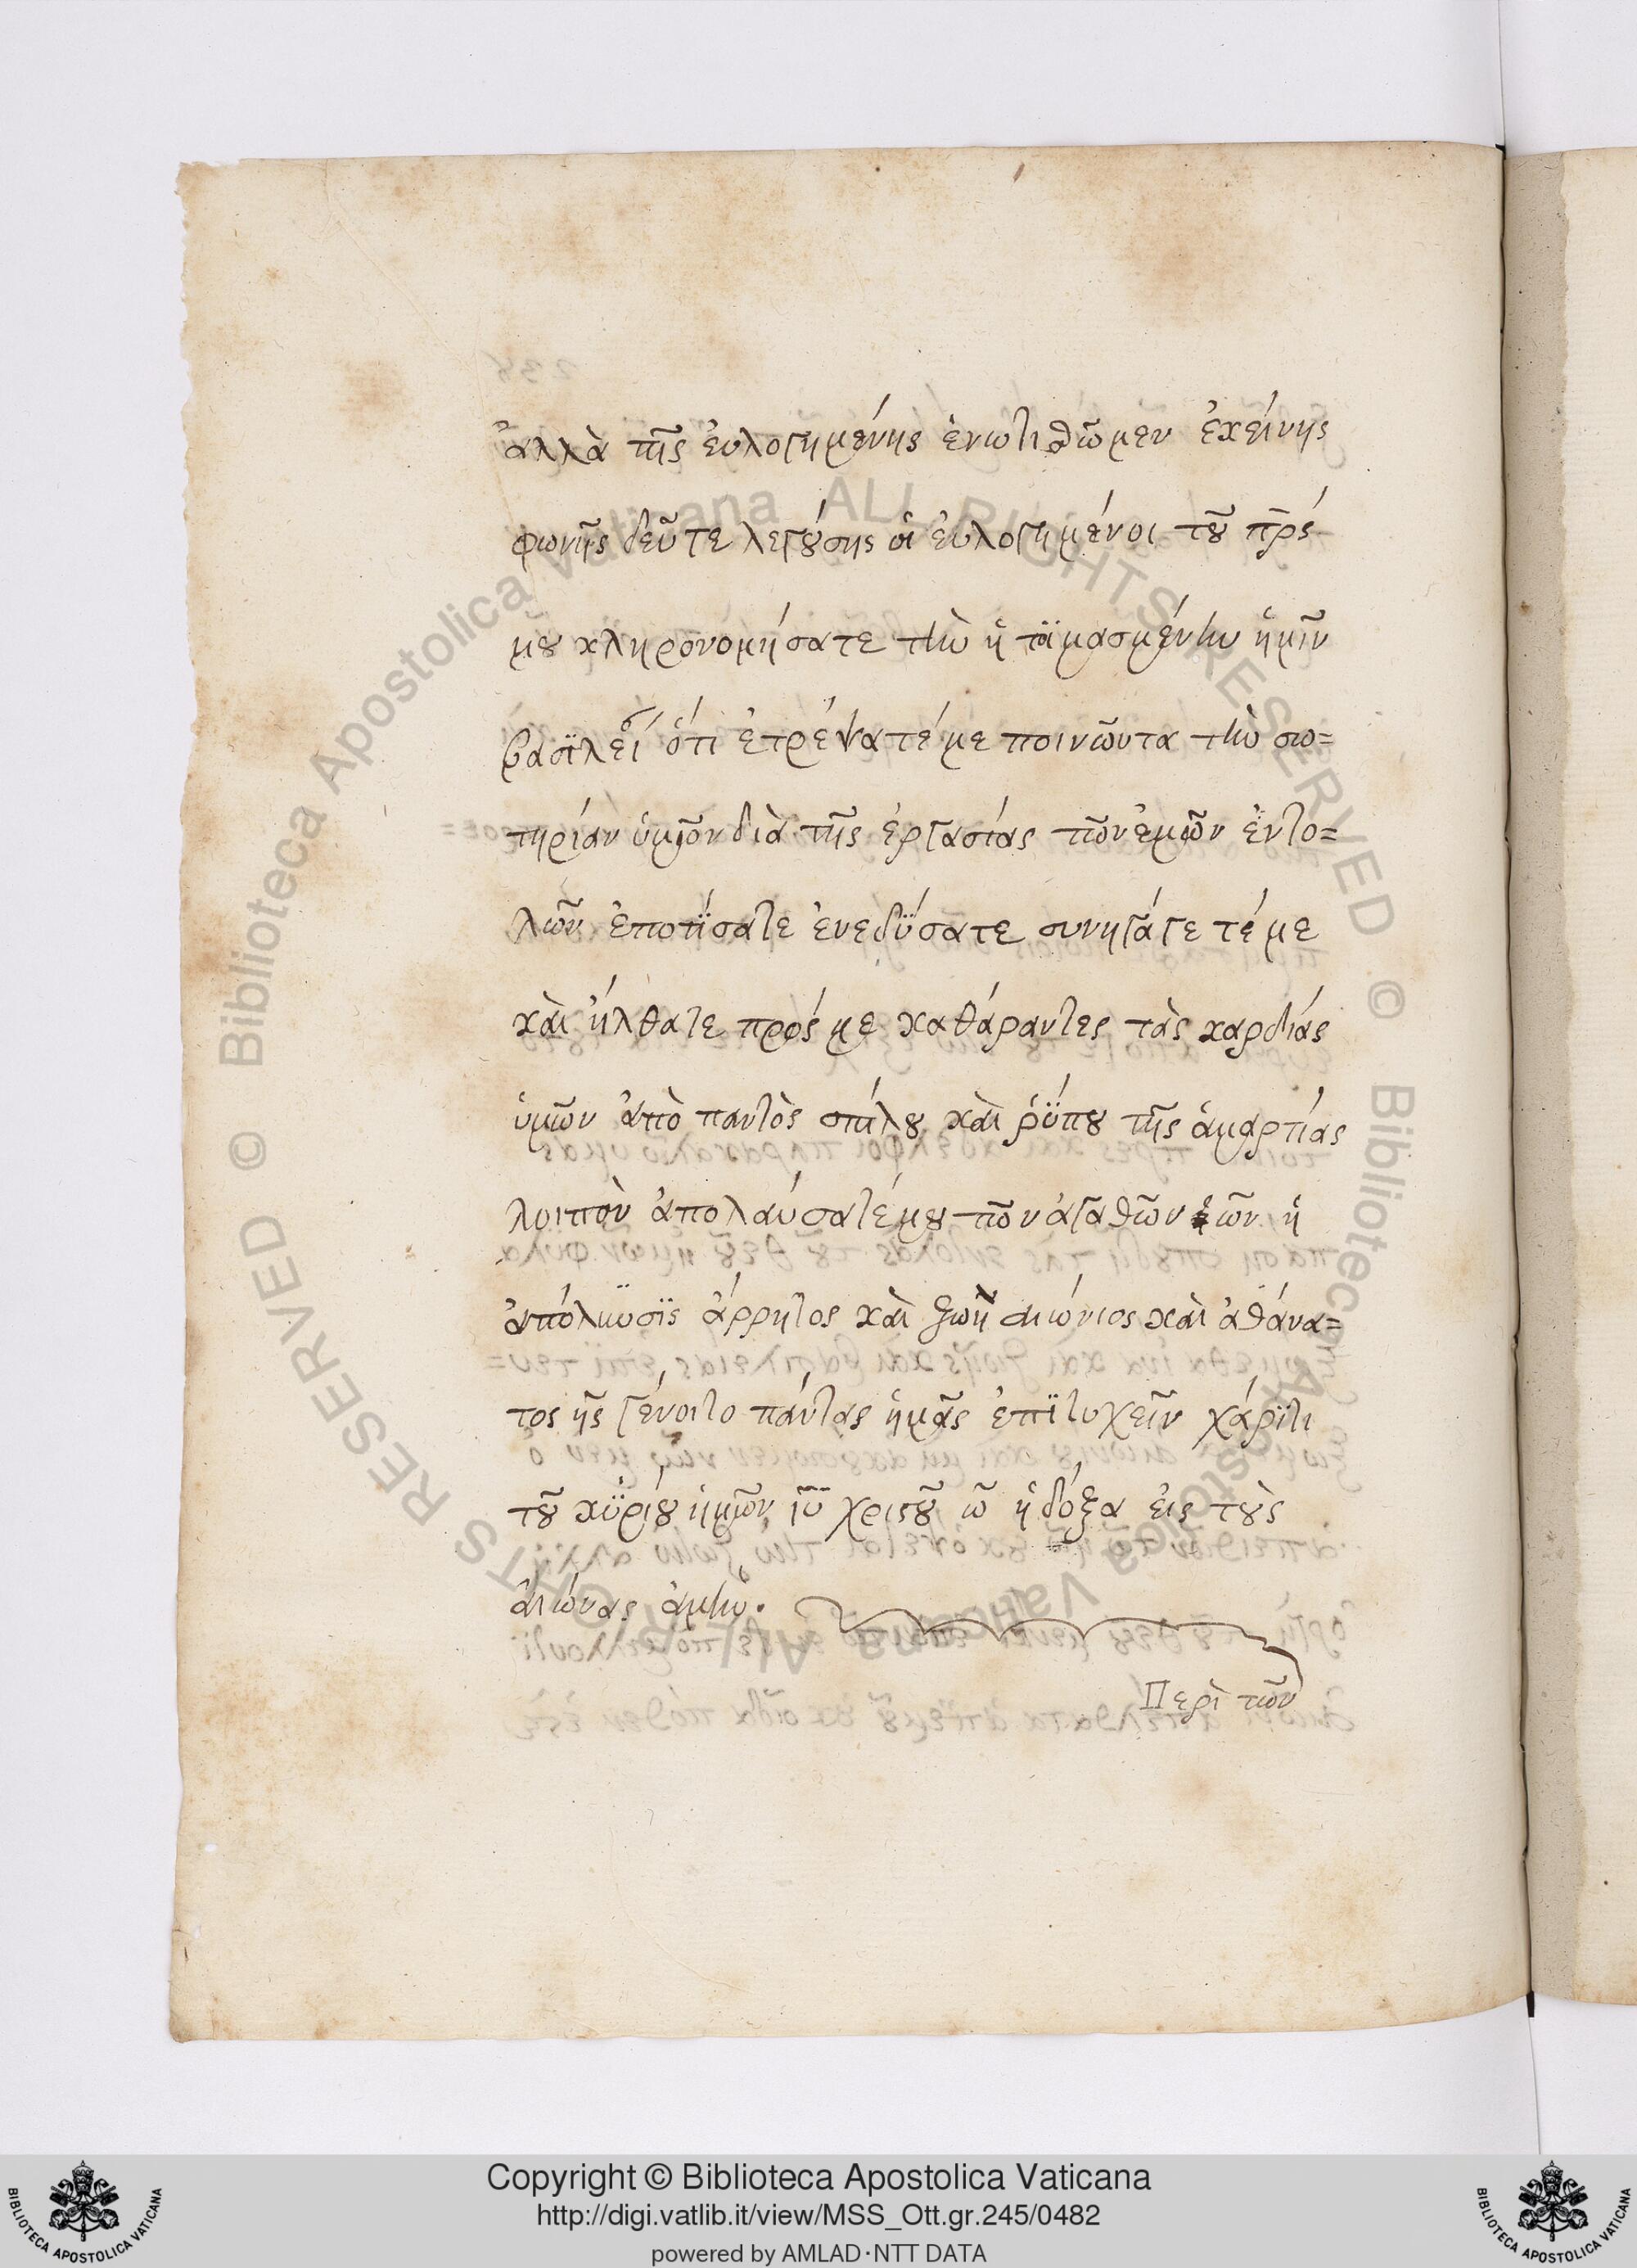 ἀλλὰ τῆς ἐυλογημένης ἐνωτιθῶμεν ἐκείνης
φωνῆς δεῦτε λεγούσης οἱ ἐυλογημένοι τοῦ π̅ρ̅ς
μου κληρονομήσατε τὴν ἡτοϊμασμένην ἡμῖν
ὅτι ἐτρέψατέ με ποινῶντα τὴν σω=
τηρίαν ὑμῶν διὰ τῆς ἐργασίας τῶν ἐμῶν ἐντο=
λῶν ἐποτΐσατε ἐνεδΰσατε συνηγάγετέ με
κὰι ἤλθατε πρός με καθάραντες τὰς καρδίας
ὑμῶν ἀπὸ παντὸς σπίλου κὰι ῥΰπου τῆς ἁμαρτίας
λοιπὸν ἀπολάυσατέ μου τῶν ἀγαθῶν ὧν ἡ
ἀπόλαυσϊς ἄρρητος κὰι ζωὴ αιώνιος κὰι ἀθάνα=
τος ἧς γένοιτο πάντας ἡμᾶς ἐπϊτυχεῖν χάρϊτι
τοῦ κϋρίου ἡμῶν ι̅υ̅ χριστοῦ ὧ ἡ δόξα ἐις τοὺς
ἀιώνας ἀμήν.
Περὶ τῶν
© Biblioteca Apostolica Vaticana ALL RIGHTS RESERVED © Biblioteca Apostolica Vaticana ALL RIGHTS RESERVED
Copyright © Biblioteca Apostolica Vaticana
http://digi.vatlib.it/view/MSS_Ott.gr.245/0482
powered by AMLAD·NTT DATA
BIBLIOTECA APOSTOLICA VATICANA
BIBLIOTECA APOSTOLICA VATICANA